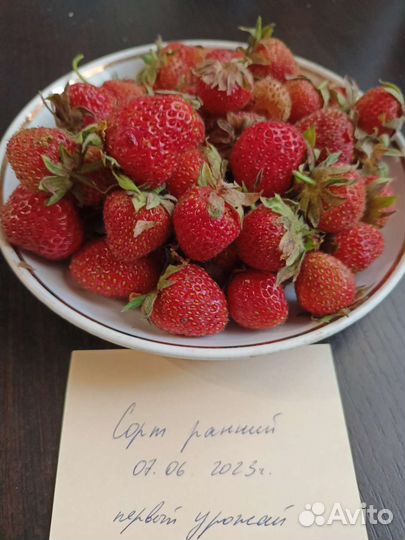 Сорт ранний
07.06 2023г.
первый урожай
Avito